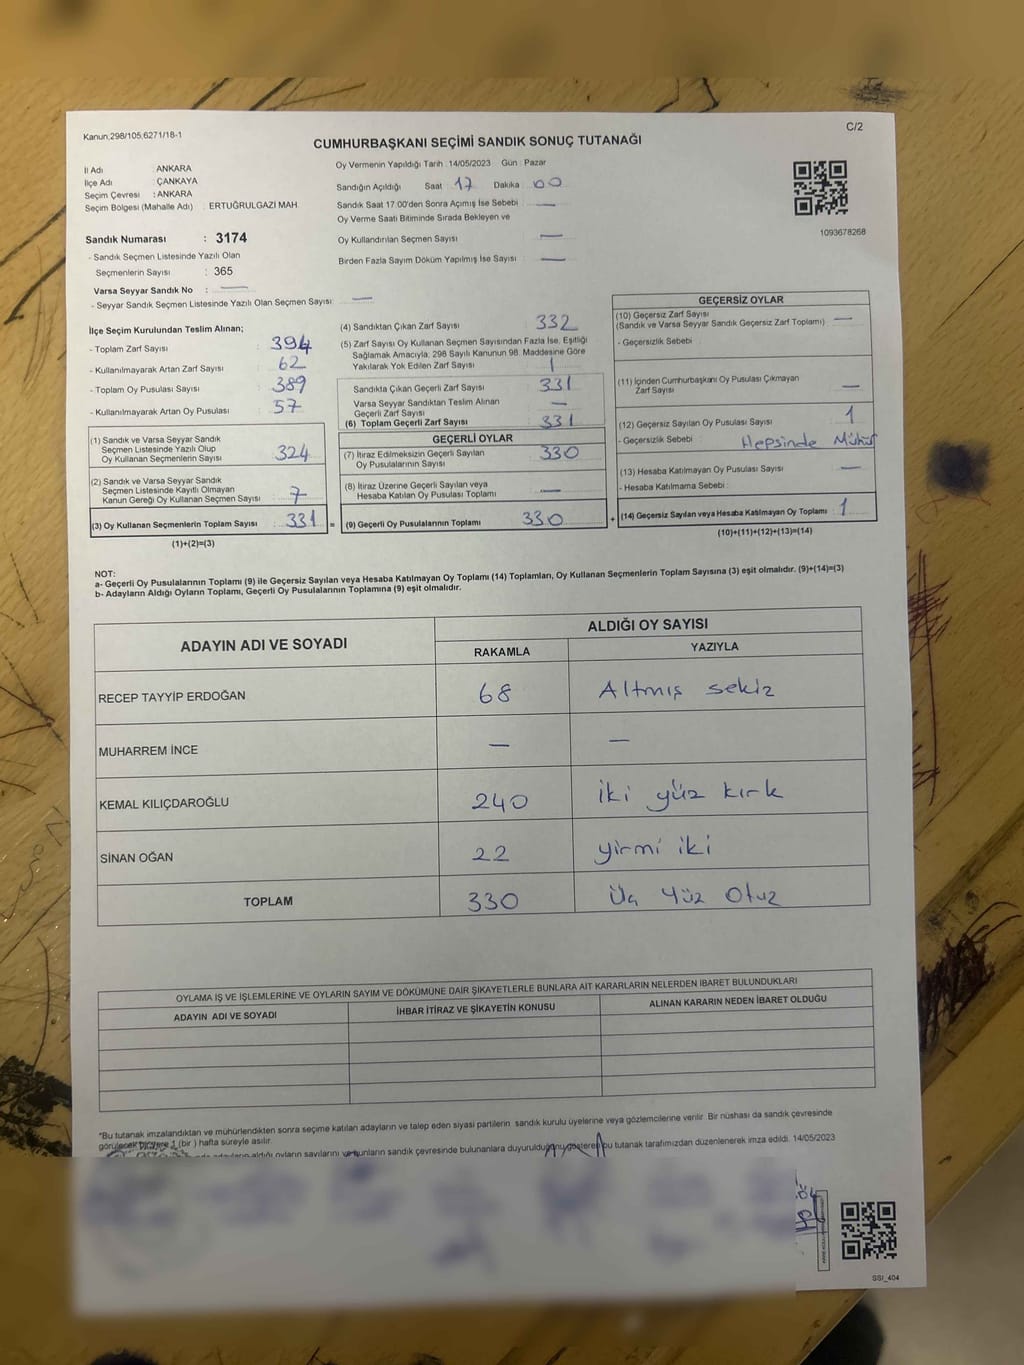 Kanun:298/105,6271/18-1
C/2
CUMHURBAŞKANI SEÇİMİ SANDIK SONUÇ TUTANAĞI
İl Adı : ANKARA
İlçe Adı : ÇANKAYA
Seçim Çevresi : ANKARA
Seçim Bölgesi (Mahalle Adı) : ERTUĞRULGAZİ MAH.
Oy Vermenin Yapıldığı Tarih :14/05/2023 Gün : Pazar
Sandığın Açıldığı Saat : 17 Dakika : 00
Sandık Saat 17:00'den Sonra Açımış İse Sebebi : —
Oy Verme Saati Bitiminde Sırada Bekleyen ve
Oy Kullandırılan Seçmen Sayısı —
Birden Fazla Sayım Döküm Yapılmış İse Sayısı : —
1093678268
Sandık Numarası : 3174
- Sandık Seçmen Listesinde Yazılı Olan
Seçmenlerin Sayısı : 365
Varsa Seyyar Sandık No : —
- Seyyar Sandık Seçmen Listesinde Yazılı Olan Seçmen Sayısı: —
İlçe Seçim Kurulundan Teslim Alınan;
- Toplam Zarf Sayısı : 394
- Kullanılmayarak Artan Zarf Sayısı : 62
- Toplam Oy Pusulası Sayısı : 389
- Kullanılmayarak Artan Oy Pusulası : 57
(1) Sandık ve Varsa Seyyar Sandık
Seçmen Listesinde Yazılı Olup
Oy Kullanan Seçmenlerin Sayısı 324
(2) Sandık ve Varsa Seyyar Sandık
Seçmen Listesinde Kayıtlı Olmayan
Kanun Gereği Oy Kullanan Seçmen Sayısı 7
(3) Oy Kullanan Seçmenlerin Toplam Sayısı 331 =
(1)+(2)=(3)
(4) Sandıktan Çıkan Zarf Sayısı : 332
(5) Zarf Sayısı Oy Kullanan Seçmen Sayısından Fazla İse, Eşitliği
Sağlamak Amacıyla; 298 Sayılı Kanunun 98. Maddesine Göre
Yakılarak Yok Edilen Zarf Sayısı : 1
Sandıkta Çıkan Geçerli Zarf Sayısı 331
Varsa Seyyar Sandıktan Teslim Alınan
Geçerli Zarf Sayısı —
(6) Toplam Geçerli Zarf Sayısı 331
GEÇERLİ OYLAR
(7) İtiraz Edilmeksizin Geçerli Sayılan
Oy Pusulalarının Sayısı 330
(8) İtiraz Üzerine Geçerli Sayılan veya
Hesaba Katılan Oy Pusulası Toplamı —
(9) Geçerli Oy Pusulalarının Toplamı 330 +
GEÇERSİZ OYLAR
(10) Geçersiz Zarf Sayısı
(Sandık ve Varsa Seyyar Sandık Geçersiz Zarf Toplamı) —
- Geçersizlik Sebebi :
(11) İçinden Cumhurbaşkanı Oy Pusulası Çıkmayan
Zarf Sayısı —
(12) Geçersiz Sayılan Oy Pusulası Sayısı : 1
- Geçersizlik Sebebi : Hepsinde Mühür
(13) Hesaba Katılmayan Oy Pusulası Sayısı : —
- Hesaba Katılmama Sebebi :
(14) Geçersiz Sayılan veya Hesaba Katılmayan Oy Toplamı 1
(10)+(11)+(12)+(13)=(14)
NOT:
a- Geçerli Oy Pusulalarının Toplamı (9) ile Geçersiz Sayılan veya Hesaba Katılmayan Oy Toplamı (14) Toplamları, Oy Kullanan Seçmenlerin Toplam Sayısına (3) eşit olmalıdır. (9)+(14)=(3)
b- Adayların Aldığı Oyların Toplamı, Geçerli Oy Pusulalarının Toplamına (9) eşit olmalıdır.
ADAYIN ADI VE SOYADI
ALDIĞI OY SAYISI
RAKAMLA YAZIYLA
RECEP TAYYİP ERDOĞAN 68 Altmış sekiz
MUHARREM İNCE — —
KEMAL KILIÇDAROĞLU 240 iki yüz kırk
SİNAN OĞAN 22 yirmi iki
TOPLAM 330 Üç Yüz Otuz
OYLAMA İŞ VE İŞLEMLERİNE VE OYLARIN SAYIM VE DÖKÜMÜNE DAİR ŞİKAYETLERLE BUNLARA AİT KARARLARIN NELERDEN İBARET BULUNDUKLARI
ADAYIN ADI VE SOYADI İHBAR İTİRAZ VE ŞİKAYETİN KONUSU ALINAN KARARIN NEDEN İBARET OLDUĞU
*Bu tutanak imzalandıktan ve mühürlendikten sonra seçime katılan adayların ve talep eden siyasi partilerin sandık kurulu üyelerine veya gözlemcilerine verilir. Bir nüshası da sandık çevresinde
görülecek bir yere 1 (bir ) hafta süreyle asılır.
adayların aldığı oyların sayılarını ve bunların sandık çevresinde bulunanlara duyurulduğunu gösteren bu tutanak tarafımızdan düzenlenerek imza edildi. 14/05/2023
SSI_404